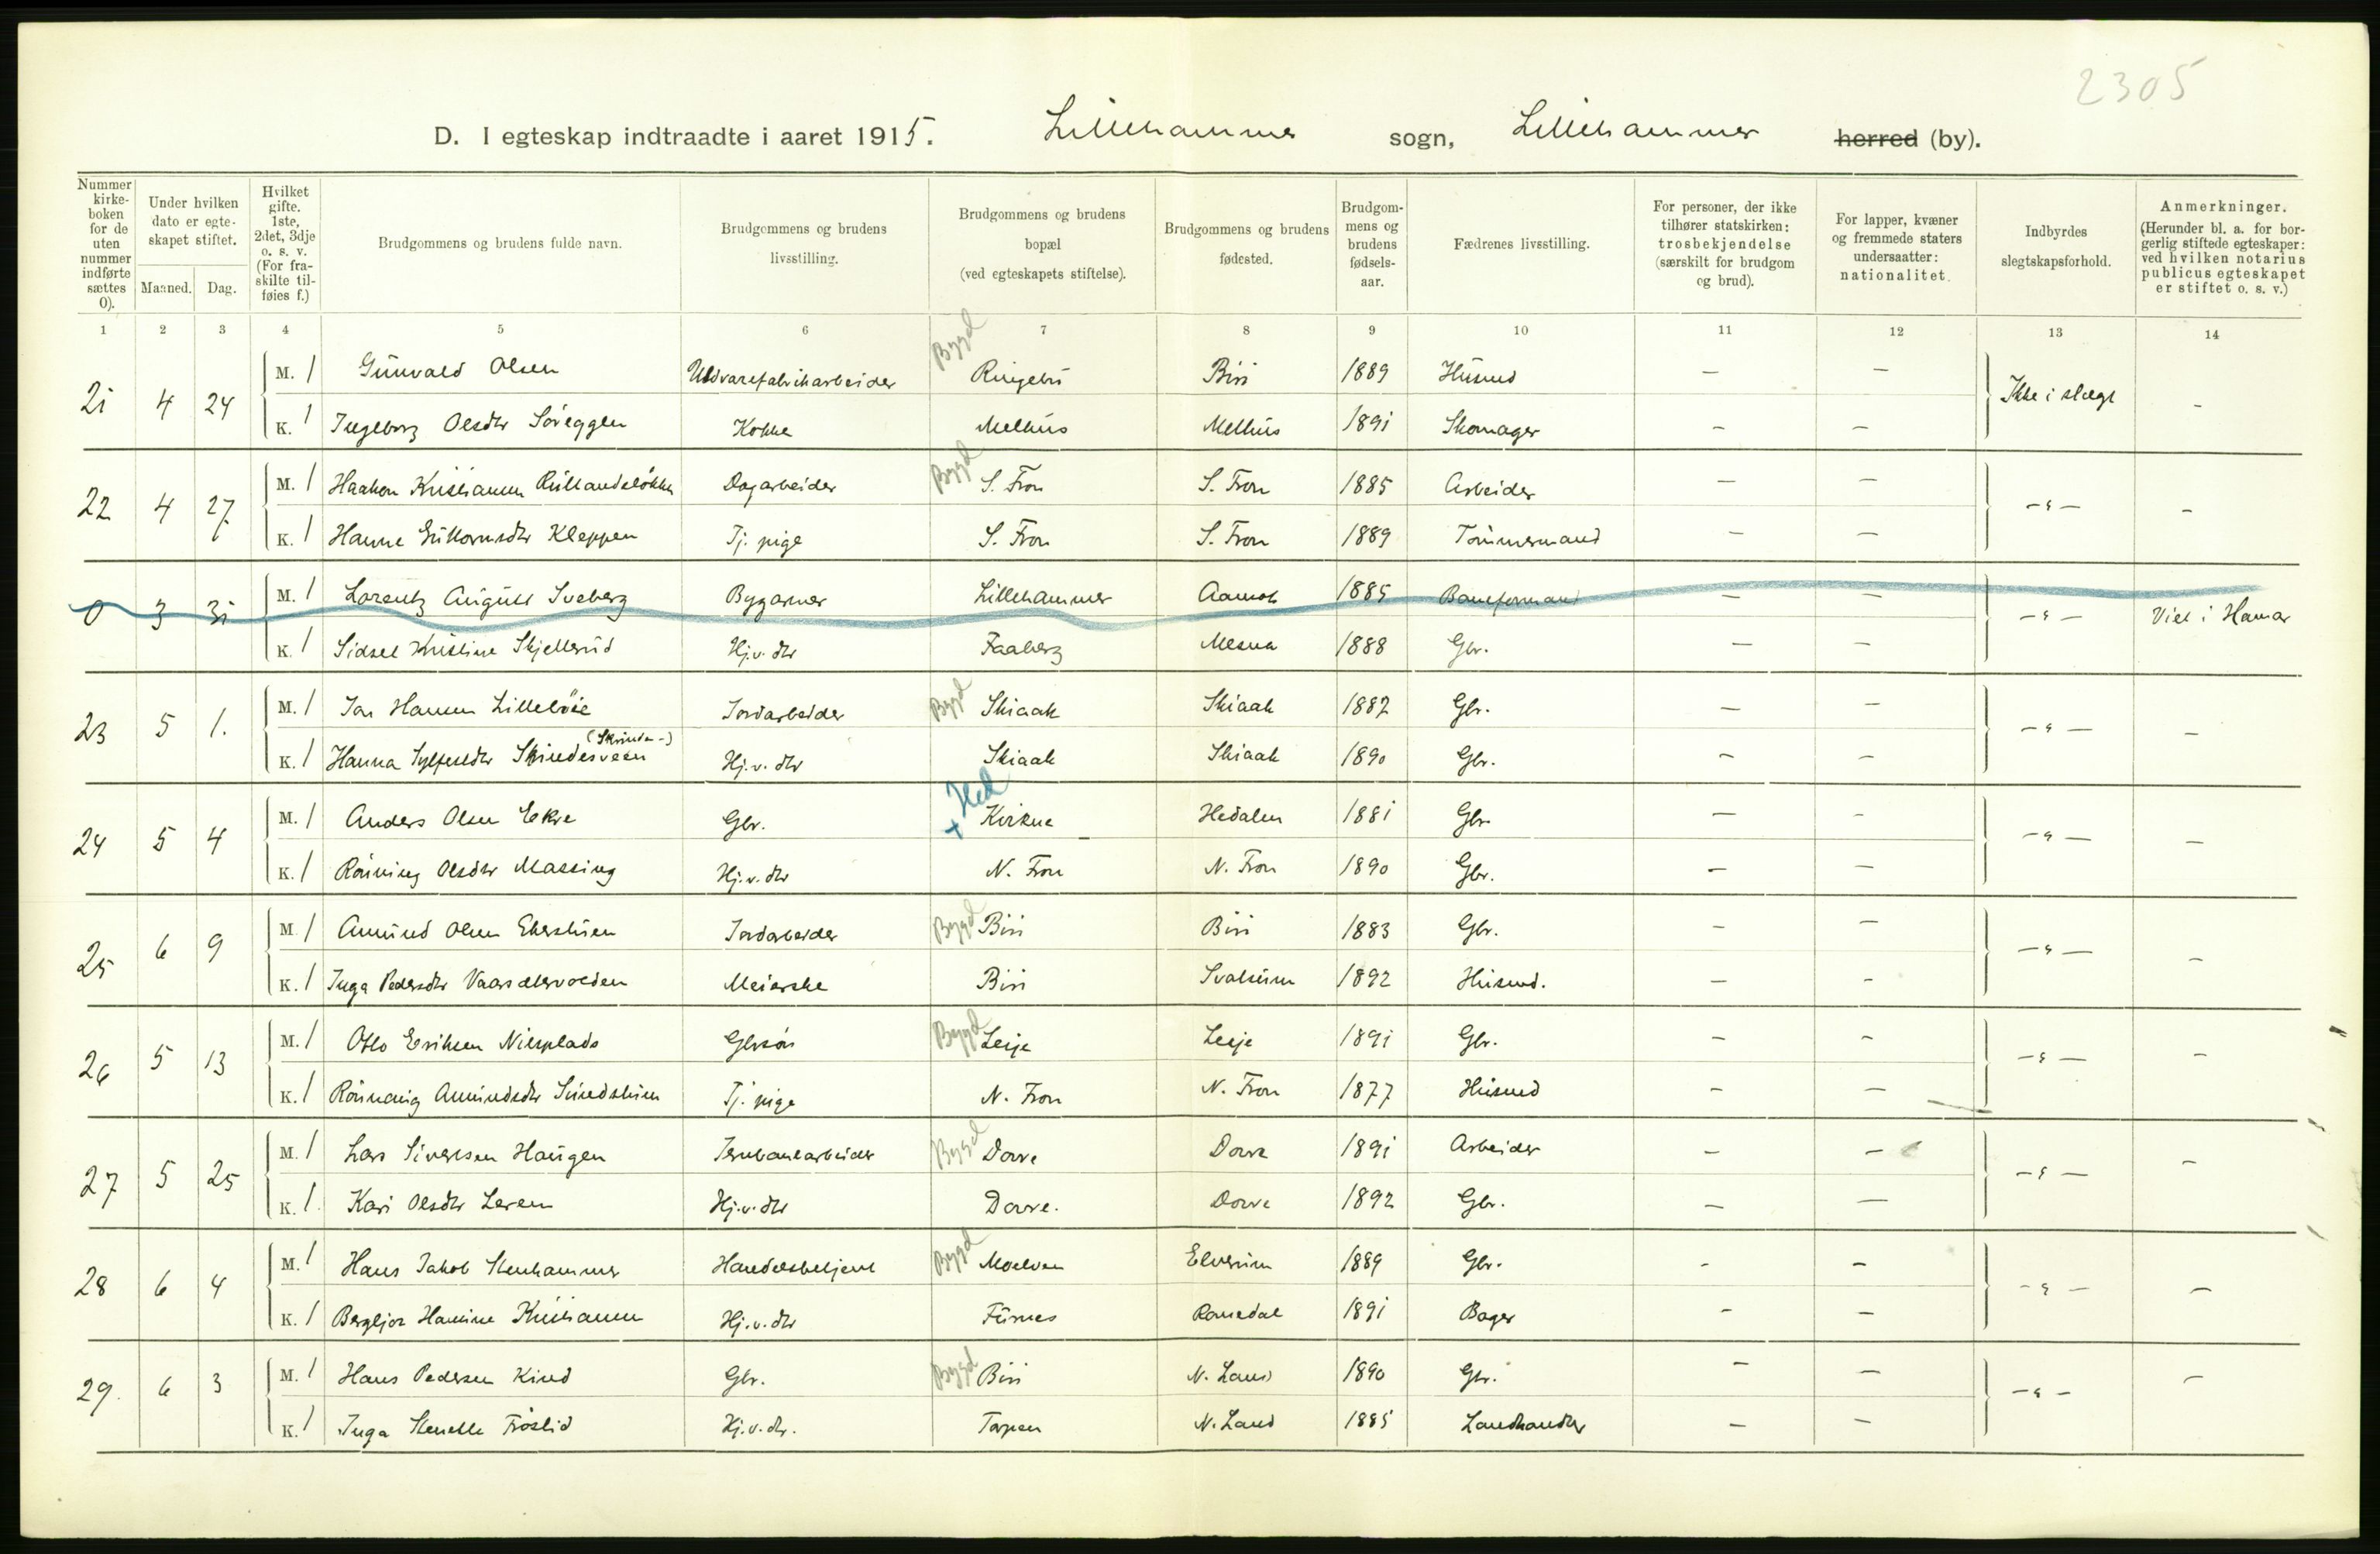 2305
D. I egteskap indtraadte i aaret 1915. Lillehammer sogn, Lillehammer herred (by).
Nummer kirkeboken for de uten nummer indførte sættes 0).
Under hvilken dato er egteskapet stiftet.
Maaned. Dag.
Hvilket gifte. 1ste, 2det, 3dje o. s. v. (For fraskilte tilføies f.)
Brudgommens og brudens fulde navn.
Brudgommens og brudens livsstilling.
Brudgommens og brudens bopæl (ved egteskapets stiftelse).
Brudgommens og brudens fødested.
Brudgommens og brudens fødselsaar.
Fædrenes livsstilling.
For personer, der ikke tilhører statskirken: trosbekjendelse (særskilt for brudgom og brud).
For lapper, kvæner og fremmede staters undersaatter: nationalitet.
Indbyrdes slegtskapsforhold.
Anmerkninger. (Herunder bl. a. for borgerlig stiftede egteskaper: ved hvilken notarius publicus egteskapet er stiftet o. s. v.)
1 2 3 4 5 6 7 8 9 10 11 12 13 14
21 4 24 M. 1 Gunvald Olsen Uldvarefabrikarbeider Bygd Ringebu Biri 1889 Husmd — — Ikke i slægt -
K. 1 Ingeborg Olsdtr Søreggen Kokke Melhus Melhus 1891 Skomager - —
22 4 27 M. 1 Haakon Kristiansen Dagarbeider Bygd S. Fron S. Fron 1885 Arbeider — — —"— -
K. 1 Hanne Guttormsdtr Kleppen Tj. pige S. Fron S. Fron 1889 Tømmermand — —
0 3 31 M. 1 Lorentz August Sveberg Bygartner Lillehammer Aamot 1885 Baneformand — — —"— Viet i Hamar
K. 1 Sidsel Kristine Skjellerud Hj.v. dtr Faaberg Mesna 1888 Gbr. — —
23 5 1. M. 1 Jon Hansen Lillebøie Jordarbeider Bygd Skiaak Skiaak 1887 Gbr. — — —"— -
(Skrinde-)
K. 1 Hanna Sylfestdtr Skindesveen Hj.v. dtr Skiaak Skiaak 1890 Gbr. - —
24 5 4 M. 1 Anders Olsen Ekre Gbr. + Hed Kvikne Hedalen 1881 Gbr — - —"— —
K. 1 Rønnaug Olsdtr Massing Hj.v. dtr N. Fron N. Fron 1890 Gbr. — —
25 6 9 M. 1 Amund Olsen Jordarbeider Bygd Biri Biri 1883 Gbr. - — —"— -
K. 1 Inga Pedersdtr Meierske Biri Svatsum 1892 Husmd. — -
26 5 13 M. 1 Otto Eriksen Nisplads Gbrsøn Bygd Lesje Lesje 1891 Gbr. - - —"— -
K. 1 Rønnaug Amundsdtr Tj. pige N. Fron N. Fron 1877 Husmd - —
27 5 25 M. 1 Lars Sivertsen Haugen Jernbanearbeider Bygd Dovre Dovre 1891 Arbeider — — —"— -
K. 1. Kari Olsdtr Leren Hj.v. dtr Dovre. Dovre 1892 Gbr. — —
28 6 4 M. 1 Hans Jakob Stenhammer Handelsbetjent Bygd Moelven Elverum 1889 Gbr. - — —"— —
K. 1 Bergljot Hansine Kristiansen Hj.v. dtr Furnes Romedal 1891 Bager - —
29. 6 3 M. 1 Hans Pedersen Kind Gbr. Bygd Biri N. Land 1890 Gbr. — — —"— —
K. 1 Inga Frøslid Hj.v. dr. Torpen N. Land 1885 Landhandler — —